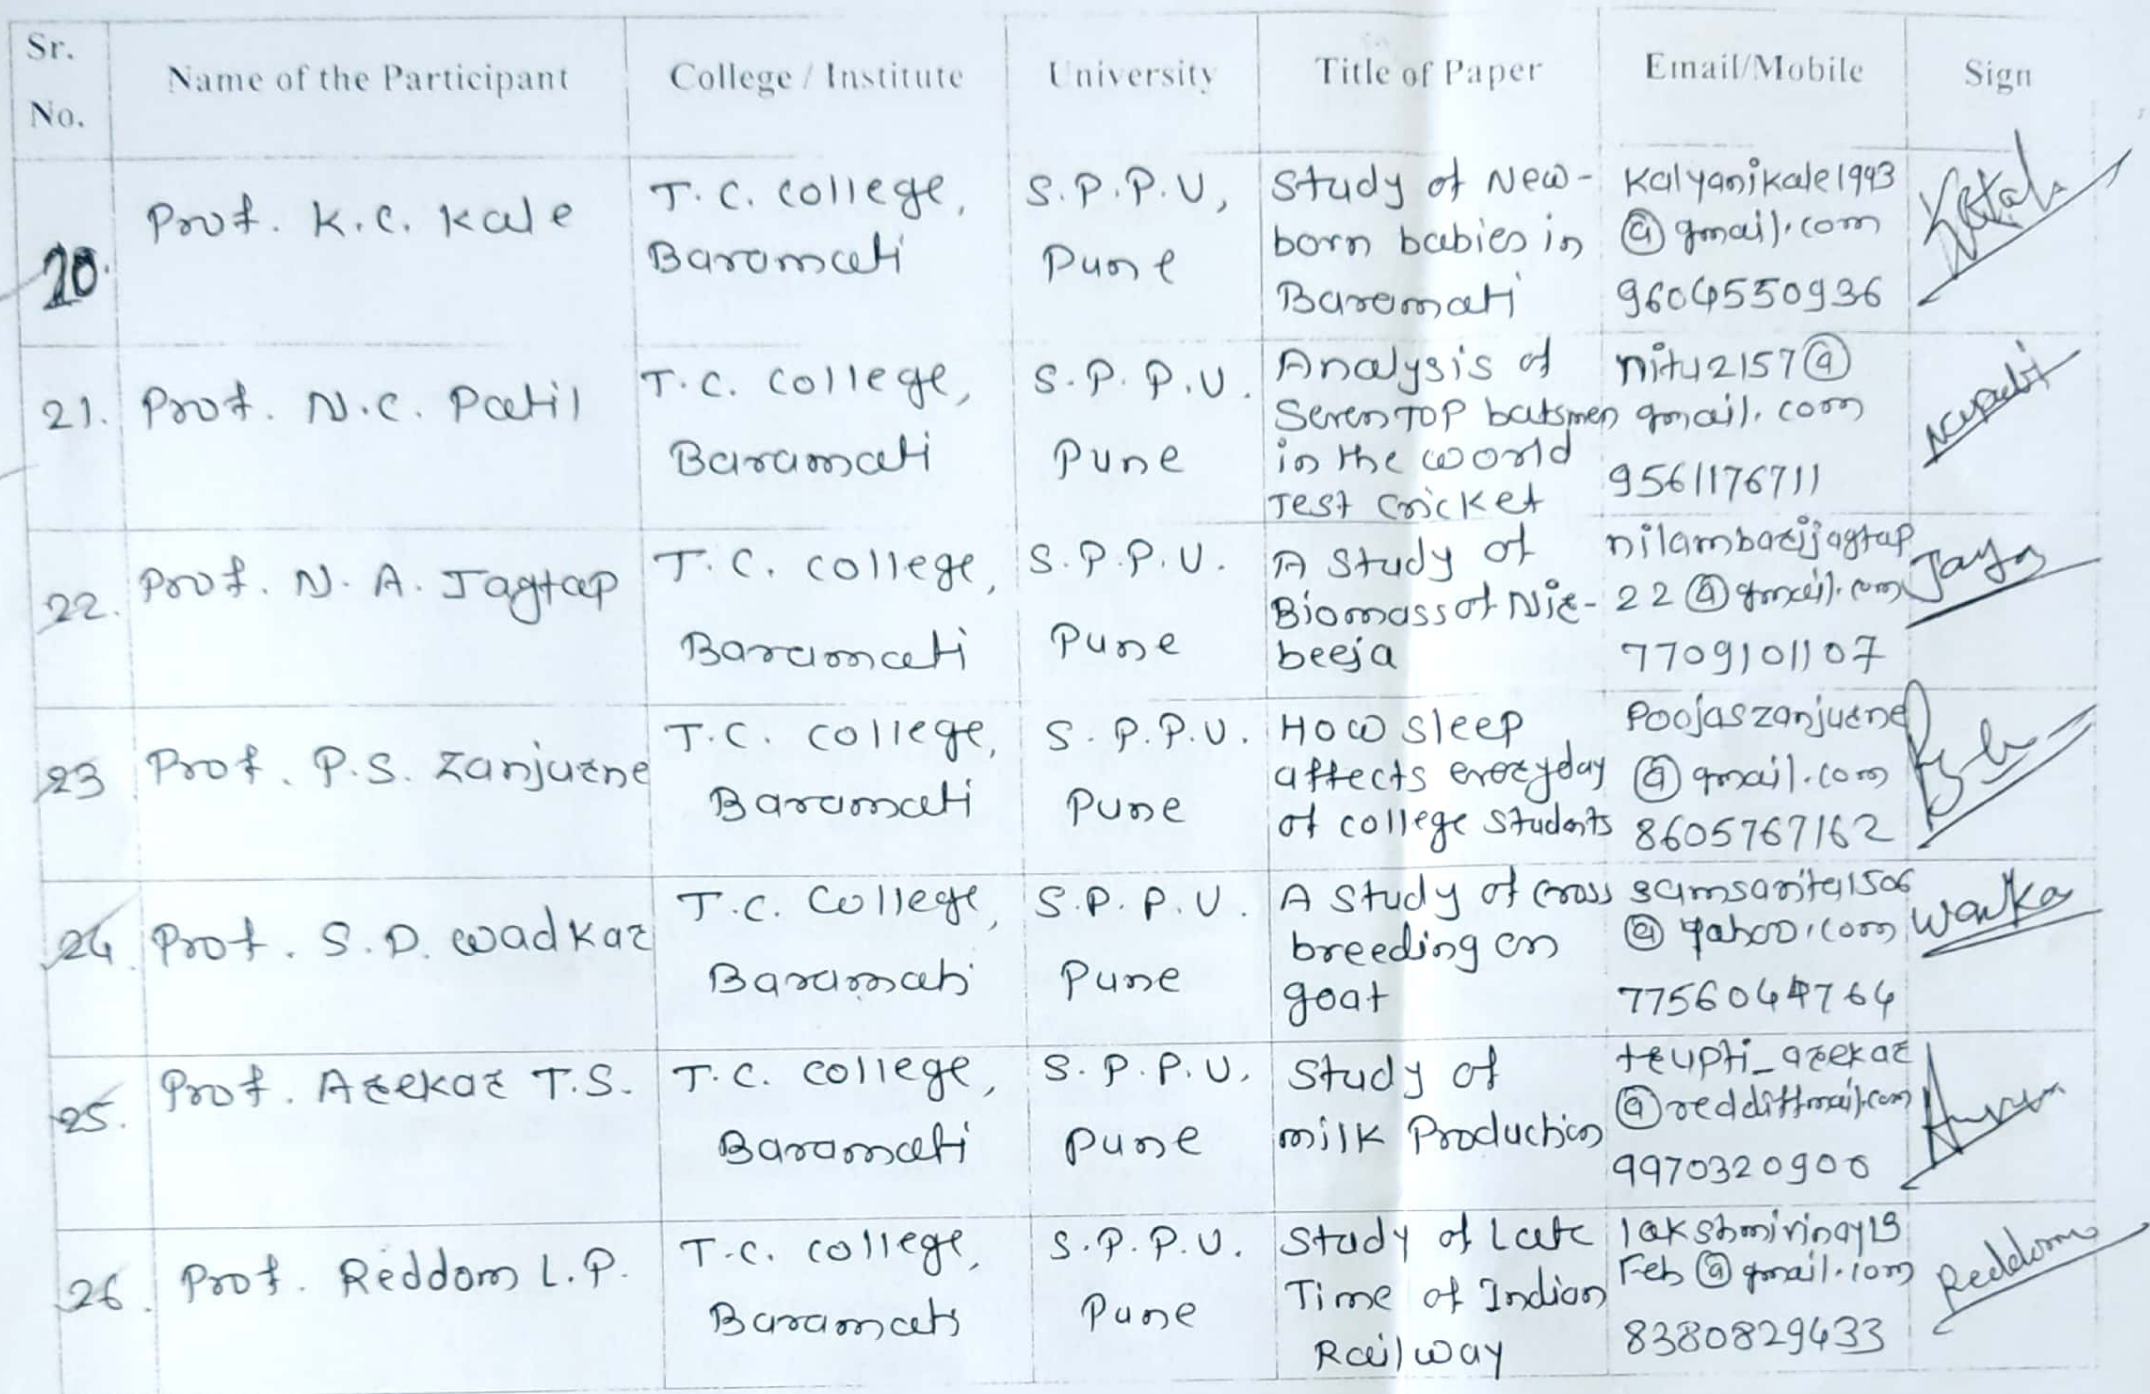 Sr. No. Name of the Participant College / Institute University Title of Paper Email/Mobile Sign
20. Prof. K.C. Kale
T.C. College,
Baramati
S.P.P.U,
Pune
Study of New-
born babies in
Baramati
kalyanikale1993
@gmail.com
9604550936
21. Prof. N.C. Patil
T.C. College,
Baramati
S.P.P.U.
Pune
Analysis of
Seven TOP batsmen
in the world
Test cricket
nitu2157@
gmail.com
9561176711
22. Prof. N. A. Jagtap
T.C. college,
Baramati
S.P.P.U.
Pune
A Study of
Biomass of Nir-
beeja
nilambarijagtap
22@gmail.com
7709101107
23 Prof. P.S. Zanjurne
T.C. college,
Baramati
S.P.P.U.
Pune
How sleep
affects everyday
of college students
Poojaszanjurne
@gmail.com
8605767162
24. Prof. S.D. Wadkar
T.C. College,
Baramati
S.P.P.U.
Pune
A Study of cross
breeding on
goat
samsarita1506
@yahoo.com
7756044764
25. Prof. Arekar T.S.
T.C. college,
Baramati
S.P.P.U.
Pune
Study of
milk Production
trupti_arekar
@rediffmail.com
9970320900
26. Prof. Reddom L.P.
T.C. college,
Baramati
S.P.P.U.
Pune
Study of Late
Time of Indian
Railway
lakshmivinay13
Feb@gmail.com
8380829433
Reddom